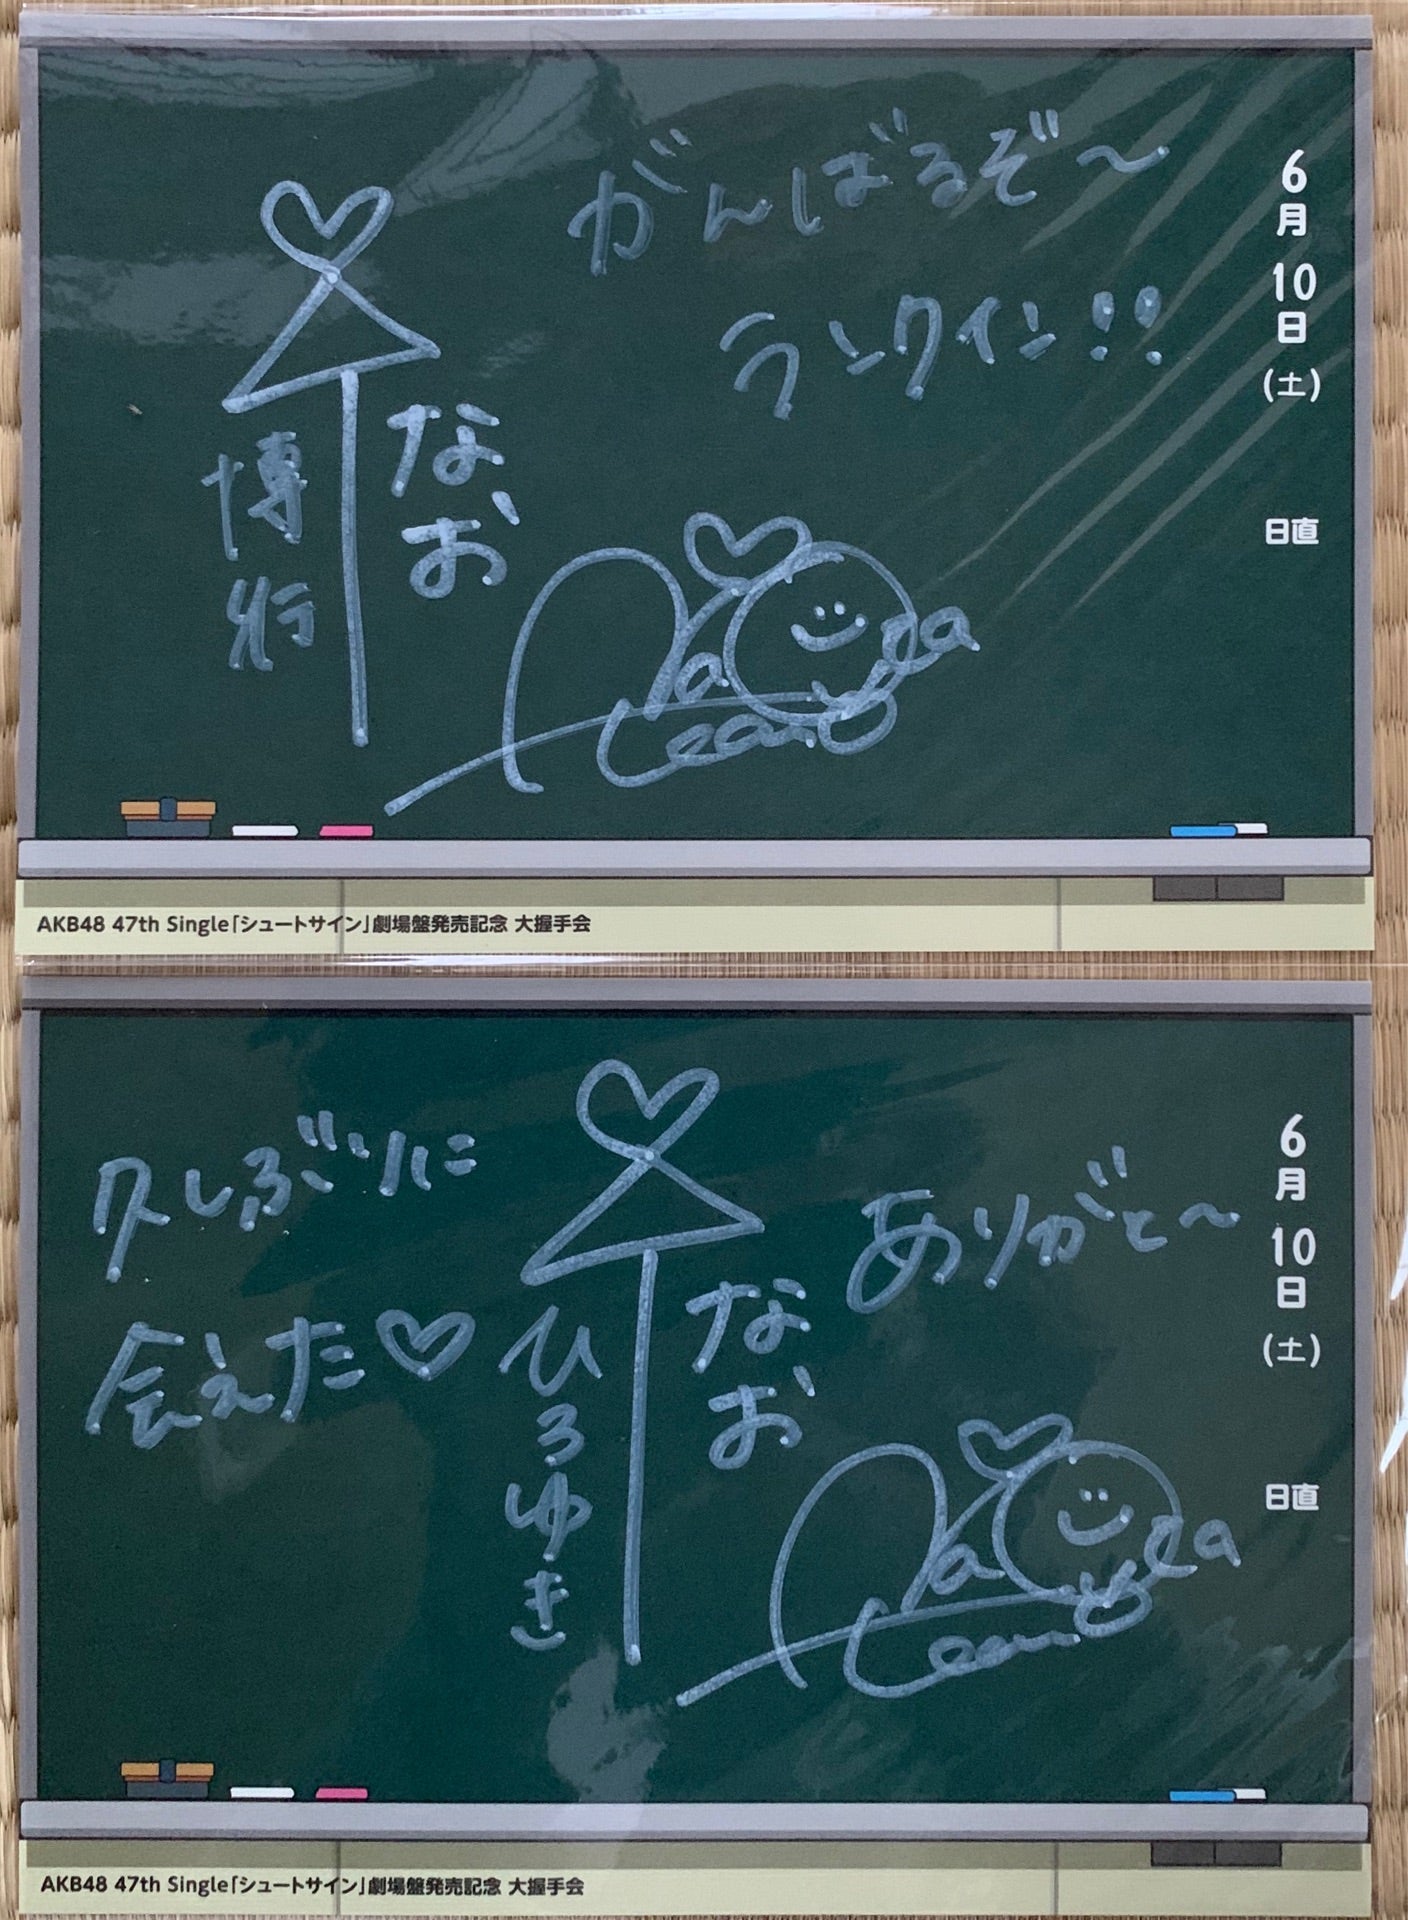 がんばるぞ〜
ランクイン!!
なお
博行
6月10日(土)
日直
AKB48 47th Single「シュートサイン」劇場盤発売記念 大握手会
久しぶりに
会えた♡
ありがと〜
なお
ひろゆき
6月10日(土)
日直
AKB48 47th Single「シュートサイン」劇場盤発売記念 大握手会